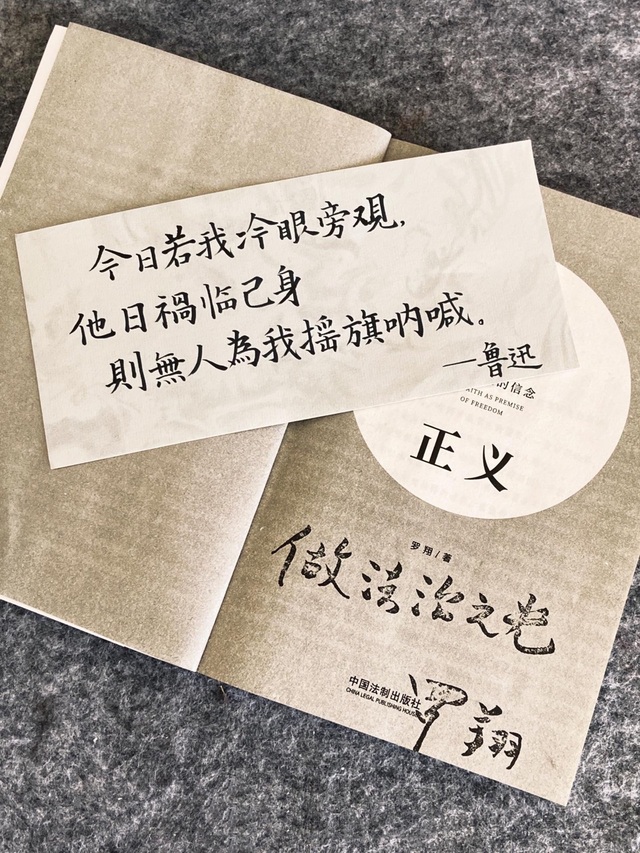 今日若我冷眼旁观,
他日禍临己身
則無人為我摇旗呐喊。
—鲁迅
的信念
FAITH AS PREMISE
OF FREEDOM
正义
罗翔/著
做法治之光
中国法制出版社
CHINA LEGAL PUBLISHING HOUSE
罗翔